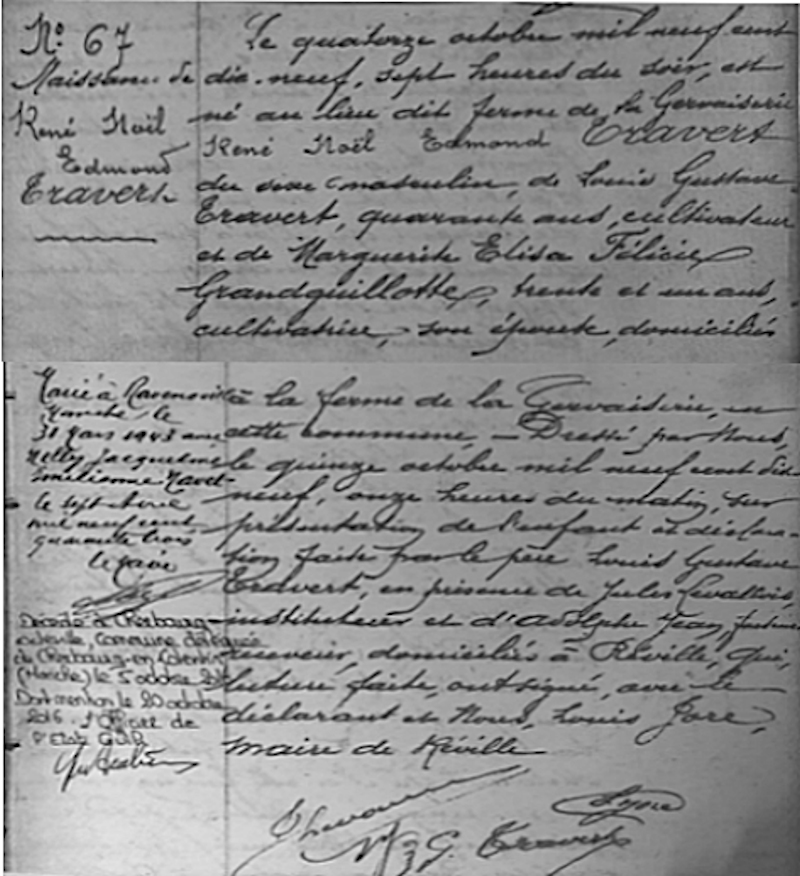 N° 67
Naissance de
René Noël
Edmond
Travert
Le quatorze octobre mil neuf cent
dix-neuf, sept heures du soir, est
né au lieu dit ferme de la Gervaiserie
René Noël Edmond Travert
du sexe masculin, de Louis Gustave
Travert, quarante ans, cultivateur
et de Marguerite Elisa Félicie
Grandguillotte, trente et un ans,
cultivatrice, son épouse, domiciliés
à la ferme de la Gervaiserie, en
cette commune, — Dressé par Nous,
le quinze octobre mil neuf cent dix-
neuf, onze heures du matin, sur
présentation de l'enfant et déclara-
tion faite par le père Louis Gustave
Travert, en présence de Jules Levallois,
instituteur et d'Adolphe Jean,
receveur, domiciliés à Réville, qui,
lecture faite, ont signé, avec le
déclarant et Nous, Louis Jore,
maire de Réville
Marié à Ravenoville
Manche, le
31 Mars 1943 avec
Nelly Jacqueline
Emilienne
le sept Avril
mil neuf cent
quarante trois
le Maire
Décédé à Cherbourg-
Octeville, commune déléguée
de Cherbourg-en-Cotentin
(Manche) le 5 octobre
Dont mention le 20 octobre
2016. l'Officier de
l'Etat Civil
G. Travert
Jore